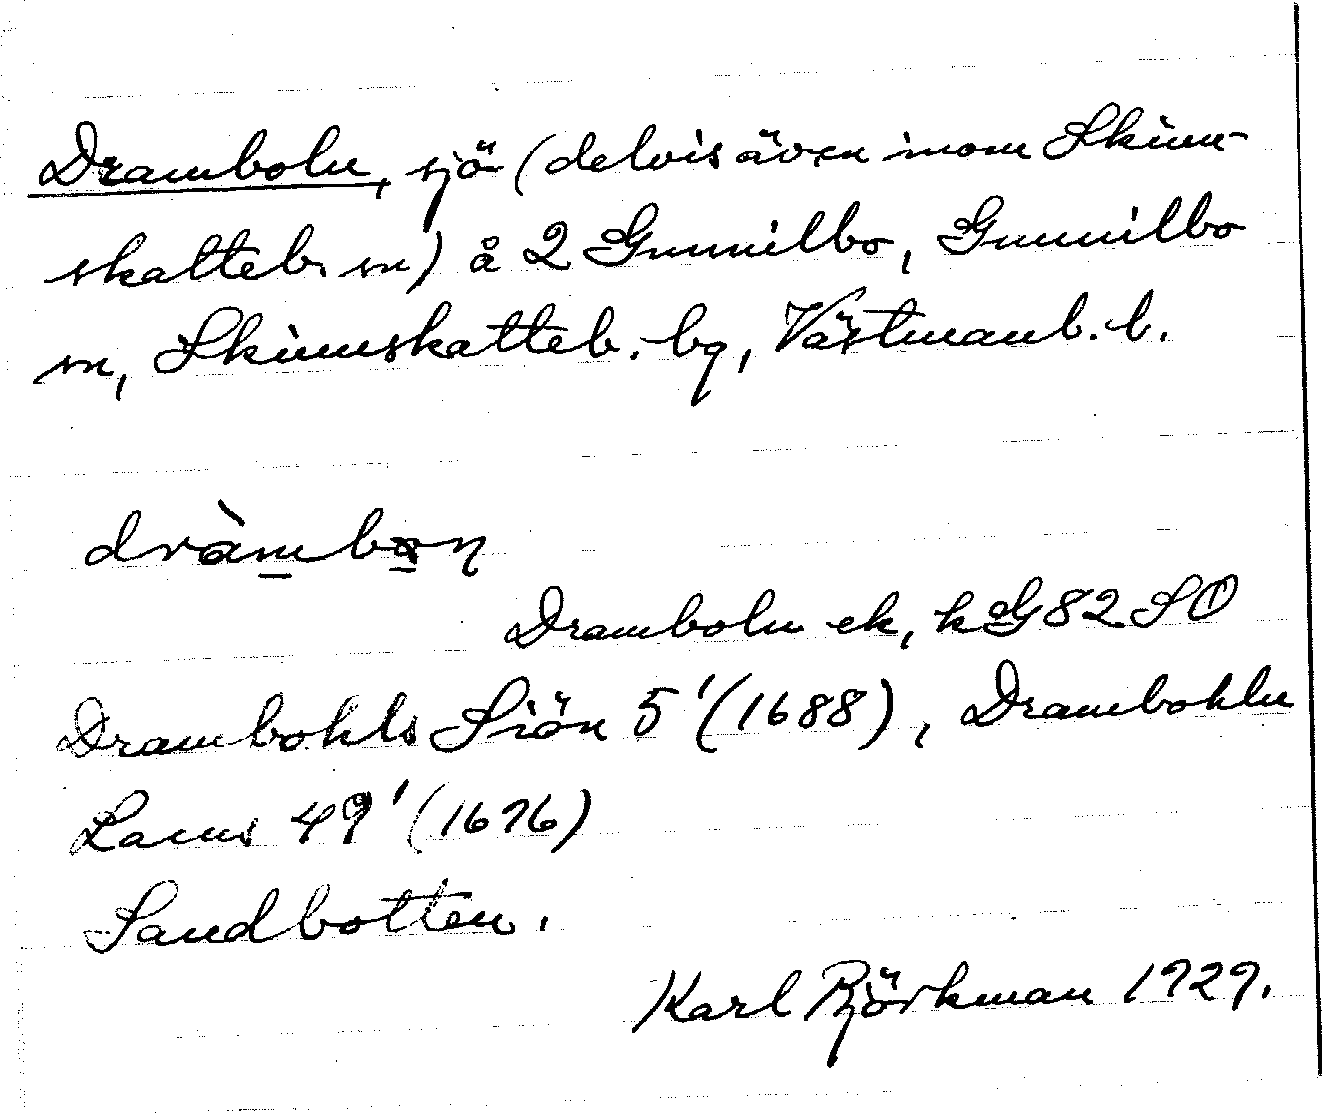 Dramboln, sjö (delvis även inom Skinn-
skatteb. sn) å 2 Gunnilbo, Gunnilbo
sn, Skinnskatteb. bg, Västmanl. l.
dràmbon
Dramboln ek, k G82 SO
Drambohls Siön 5' (1688), Drambohln
Lacus 49' (1676)
Sandbotten.
Karl Björkman 1929.